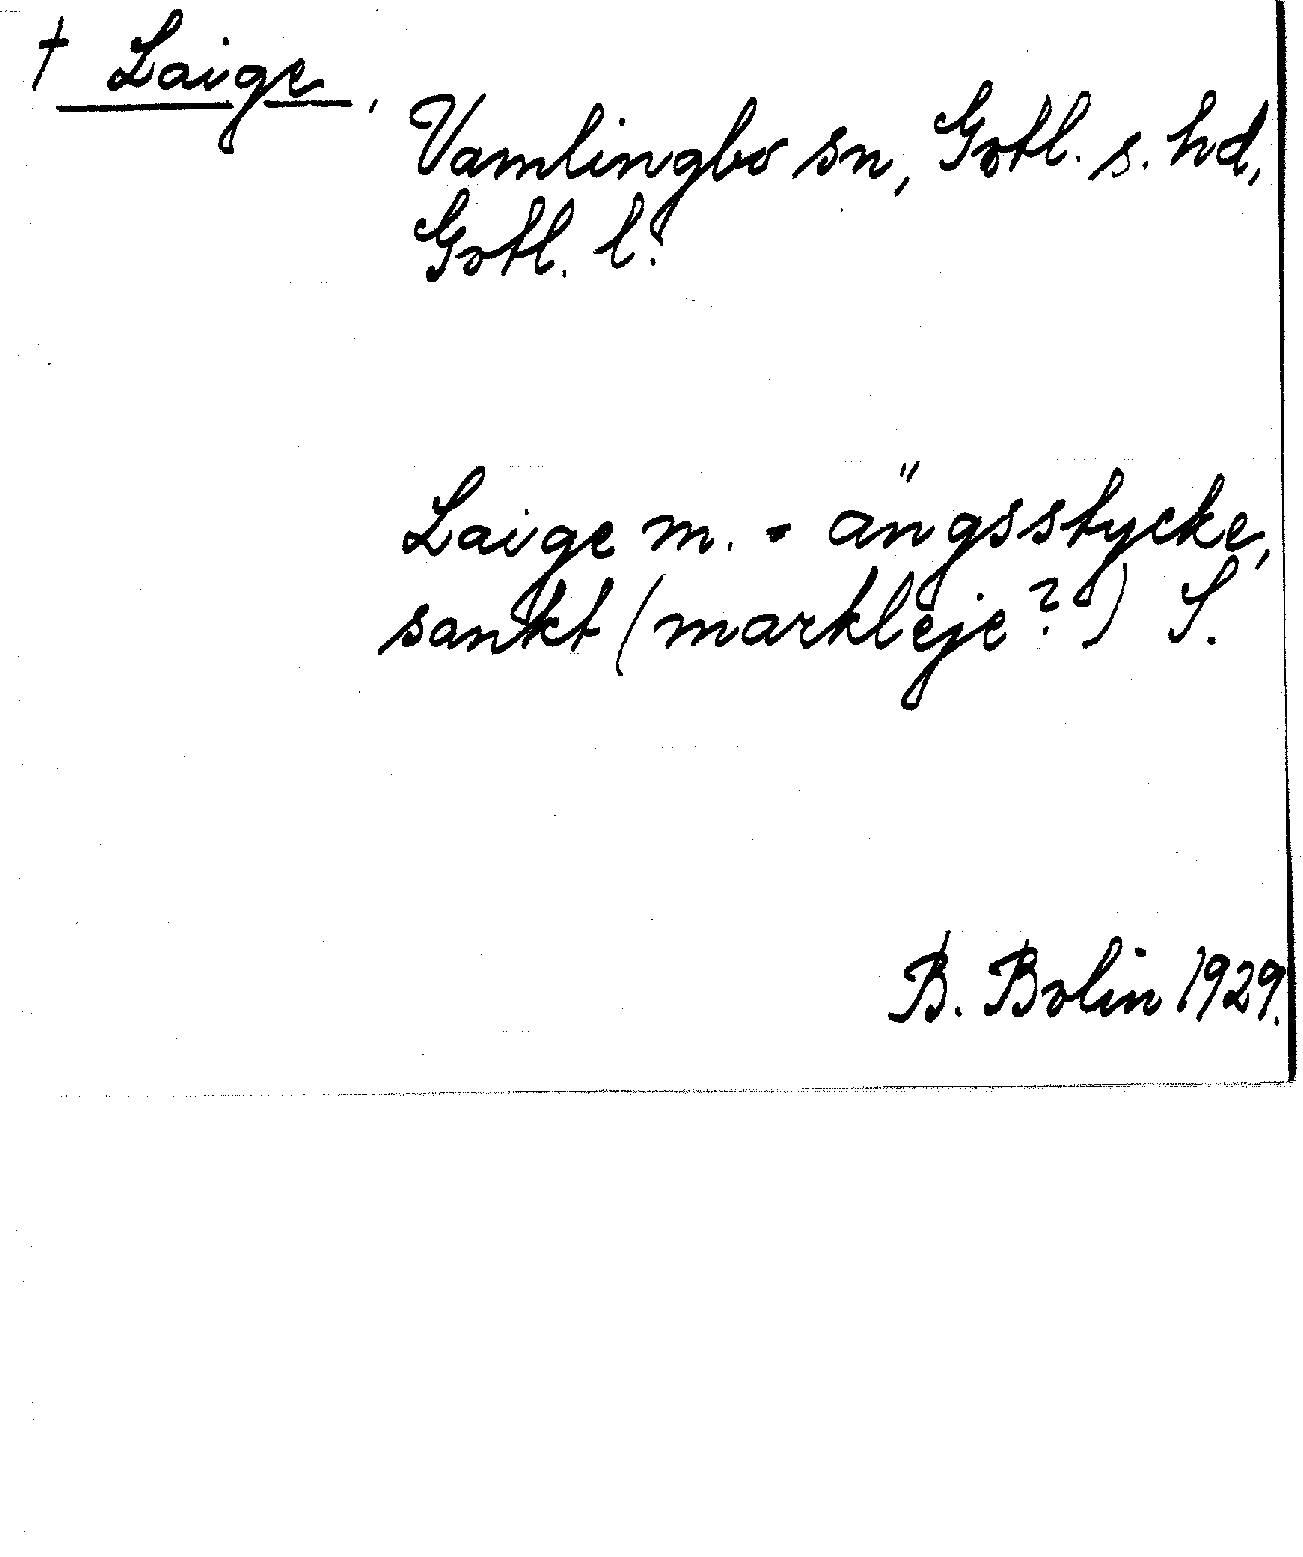 † Laige,
Vamlingbo sn, Gotl. s. hd,
Gotl. l.
Laige m. - ängsstycke,
sankt (markleje?) S.
B. Bolin 1929.